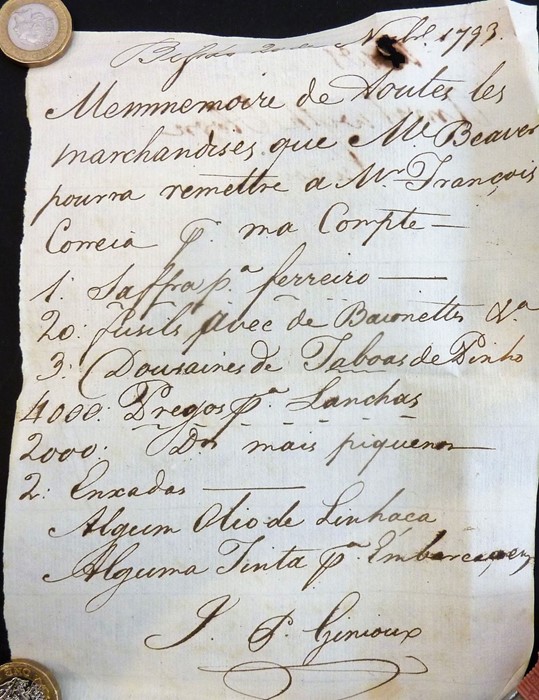 Nbr.ᵉ 1793.
Memnemoire de toutes les
marchandises que Mʳ Beaver
pourra remettre a Mʳ François
Correia pʳ. ma Compte —
1: Saffra pᵃ ferreiro —
20: fusils avec de Baionettes &ᵃ
3: Dousaines de Taboas de Pinho
4000: Pregos pᵃ. Lanchas
2000: Dos mais piquenos —
2: Enxadas —
Algum Olio de Linhaca
Alguma Tinta pᵃ. Embarcaçoens
J. P. Genioux